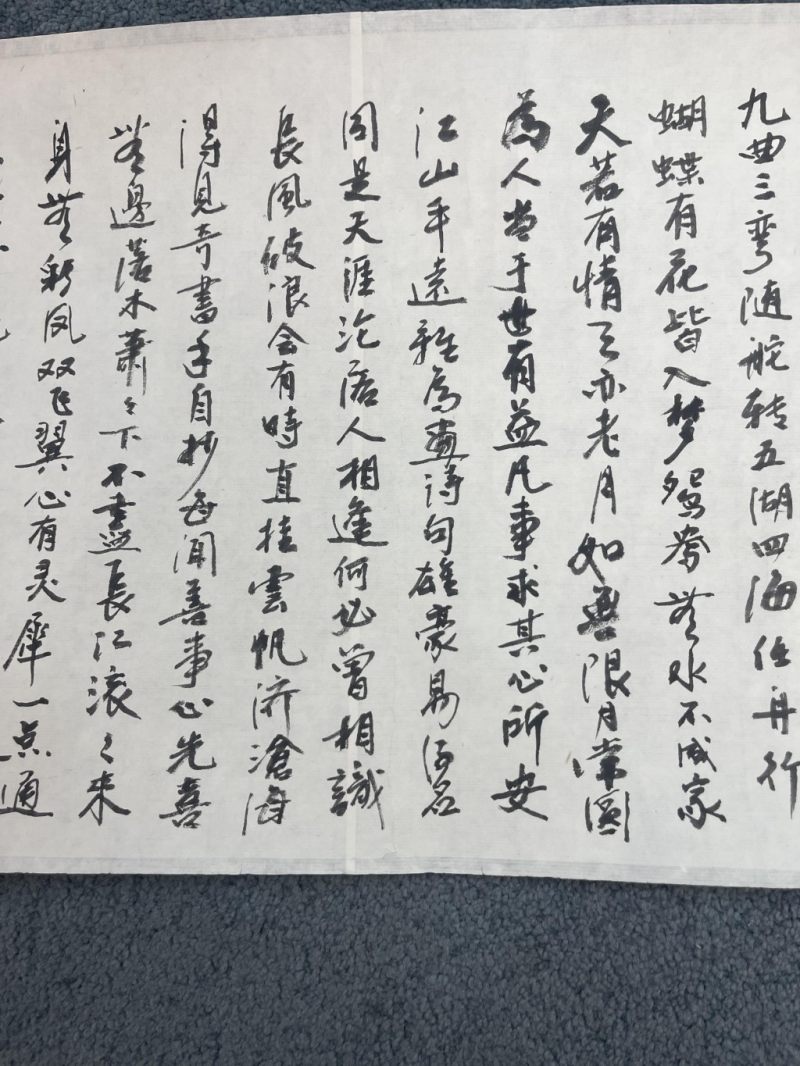 九曲三弯随舵转五湖四海任舟行
蝴蝶有花皆入梦鸳鸯無水不成家
天若有情天亦老月如無恨月常圓
為人當于世有益凡事求其心所安
江山平遠雅為畫詩句雄豪易得名
同是天涯沦落人相逢何必曾相識
長風破浪会有時直挂雲帆济滄海
得見奇書手自抄每聞善事心先喜
無邊落木蕭々下不盡長江滚々来
身無彩凤双飞翼心有灵犀一点通